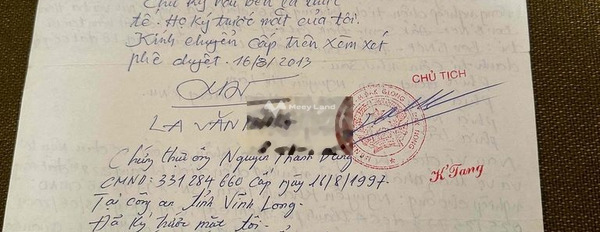 Chữ ký hai bên là
tế. Họ ký trước mắt của tôi.
Kính chuyển cấp trên xem xét
phê duyệt. 16/8/2013
CHỦ TỊCH
Meey Land
LA VĂN
K'Tang
Chứng thư ông Nguyễn Thanh
CMND: 331 284 660 Cấp ngày 11/8/1997.
Tại công an tỉnh Vĩnh Long.
Đã ký trước mắt tôi.